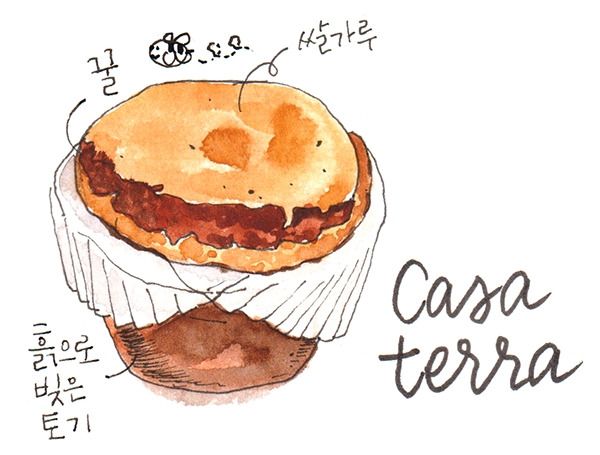 꿀
쌀가루
Casa
terra
흙으로
빚은
토기